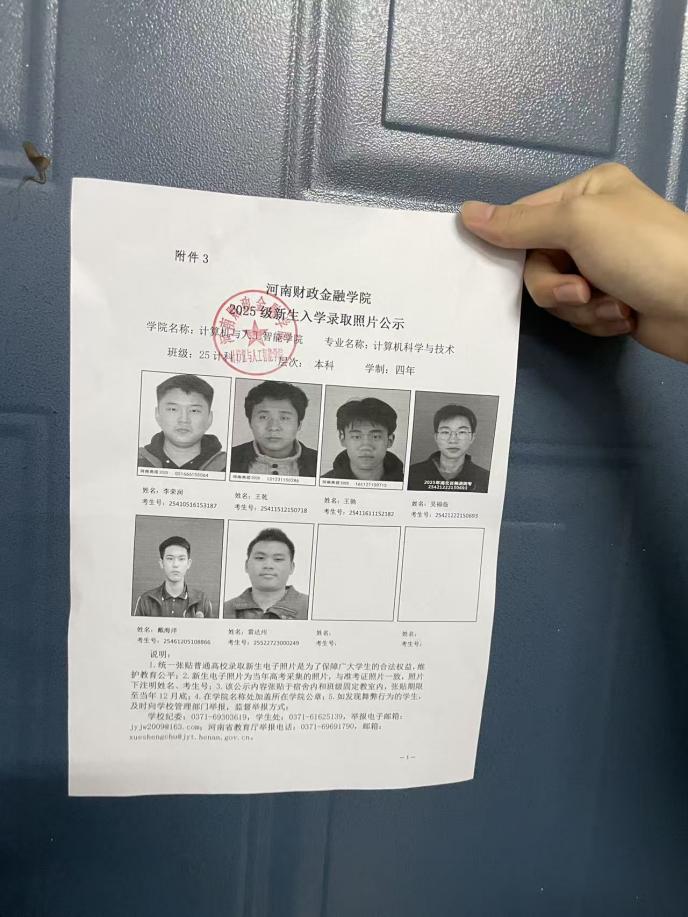 附件 3
河南财政金融学院
2025 级新生入学录取照片公示
学院名称：计算机与人工智能学院 专业名称：计算机科学与技术
班级：25 计科 层次： 本科 学制：四年
河南高招 2025
河南高招 2025
河南高招 2025
2025年湖北省普通高考
25421222150693
姓名：李荣润 姓名：王乾 姓名：王驰 姓名：吴禄临
考生号：25410516153187 考生号：25411512150718 考生号：25411611152182 考生号：25421222150693
姓名：戴海洋 姓名：雷达州 姓名： 姓名：
考生号：25461205108866 考生号：25522723000249 考生号： 考生号：
说明：
1.统一张贴普通高校录取新生电子照片是为了保障广大学生的合法权益，维
护教育公平；2.新生电子照片为当年高考采集的照片，与准考证照片一致，照片
下注明姓名、考生号；3.该公示内容张贴于宿舍内和班级固定教室内，张贴期限
至当年 12 月底；4.在学院名称处加盖所在学院公章；5.如发现舞弊行为的学生，
及时向学校管理部门举报，监督举报方式：
学校纪委：0371-69303619，学生处：0371-61625139，举报电子邮箱：
jyjw2009@163.com；河南省教育厅举报电话：0371-69691790，邮箱：
xueshengchu@jyt.henan.gov.cn。
- 1 -